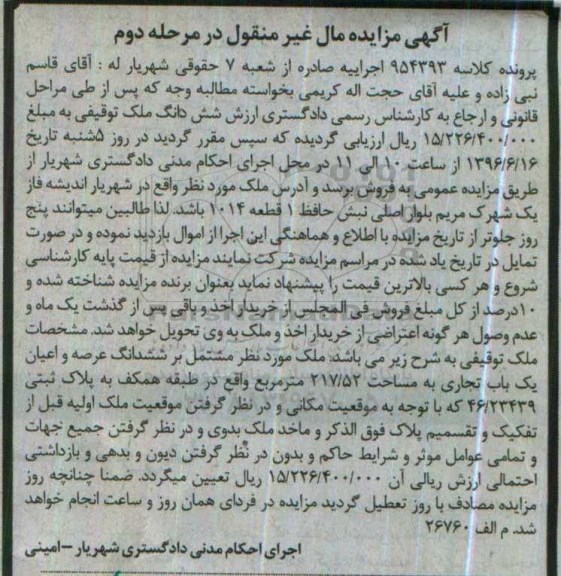 آگهی مزایده مال غیر منقول در مرحله دوم
پرونده کلاسه ۹۵۴۳۹۳ اجراییه صادره از شعبه ۷ حقوقی شهریار له : آقای قاسم
نبی زاده و علیه آقای حجت اله کریمی بخواسته مطالبه وجه که پس از طی مراحل
قانونی و ارجاع به کارشناس رسمی دادگستری ارزش شش دانگ ملک توقیفی به مبلغ
۱۵/۲۲۶/۴۰۰/۰۰۰ ریال ارزیابی گردیده که سپس مقرر گردید در روز ۵شنبه تاریخ
۱۳۹۶/۶/۱۶ از ساعت ۱۰ الی ۱۱ در محل اجرای احکام مدنی دادگستری شهریار از
طریق مزایده عمومی به فروش برسد و آدرس ملک مورد نظر واقع در شهریار اندیشه فاز
یک شهرک مریم بلوار اصلی نبش حافظ ۱ قطعه ۱۰۱۴ باشد. لذا طالبین میتوانند پنج
روز جلوتر از تاریخ مزایده با اطلاع و هماهنگی این اجرا از اموال بازدید نموده و در صورت
تمایل در تاریخ یاد شده در مراسم مزایده شرکت نمایند مزایده از قیمت پایه کارشناسی
شروع و هر کسی بالاترین قیمت را پیشنهاد نماید بعنوان برنده مزایده شناخته شده و
۱۰درصد از کل مبلغ فروش فی المجلس از خریدار اخذ و باقی پس از گذشت یک ماه و
عدم وصول هر گونه اعتراضی از خریدار اخذ و ملک به وی تحویل خواهد شد. مشخصات
ملک توقیفی به شرح زیر می باشد: ملک مورد نظر مشتمل بر ششدانگ عرصه و اعیان
یک باب تجاری به مساحت ۲۱۷/۵۲ مترمربع واقع در طبقه همکف به پلاک ثبتی
۴۶/۲۳۴۳۹ که با توجه به موقعیت مکانی و در نظر گرفتن موقعیت ملک اولیه قبل از
تفکیک و تقسمیم پلاک فوق الذکر و ماخذ ملک بدوی و در نظر گرفتن جمیع جهات
و تمامی عوامل موثر و شرایط حاکم و بدون در نظر گرفتن دیون و بدهی و بازداشتی
احتمالی ارزش ریالی آن ۱۵/۲۲۶/۴۰۰/۰۰۰ ریال تعیین میگردد. ضمنا چنانچه روز
مزایده مصادف با روز تعطیل گردید مزایده در فردای همان روز و ساعت انجام خواهد
شد. م الف ۲۶۷۶۰
اجرای احکام مدنی دادگستری شهریار -امینی